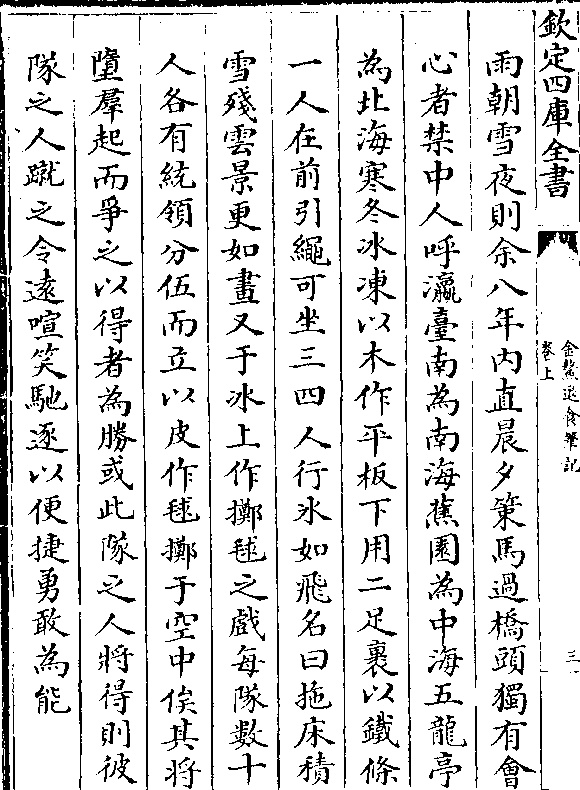 欽定四庫全書
金鰲退食筆記
卷上
三
雨朝雪夜則余八年內直晨夕策馬過橋頭獨有會
心者禁中人呼瀛臺南為南海蕉園為中海五龍亭
為北海寒冬冰凍以木作平板下用二足裹以鐵條
一人在前引繩可坐三四人行冰如飛名曰拖床積
雪殘雲景更如畫又于冰上作擲毬之戲每隊數十
人各有統領分伍而立以皮作毬擲于空中俟其將
墮羣起而爭之以得者為勝或此隊之人將得則彼
隊之人蹴之令遠喧笑馳逐以便捷勇敢為能